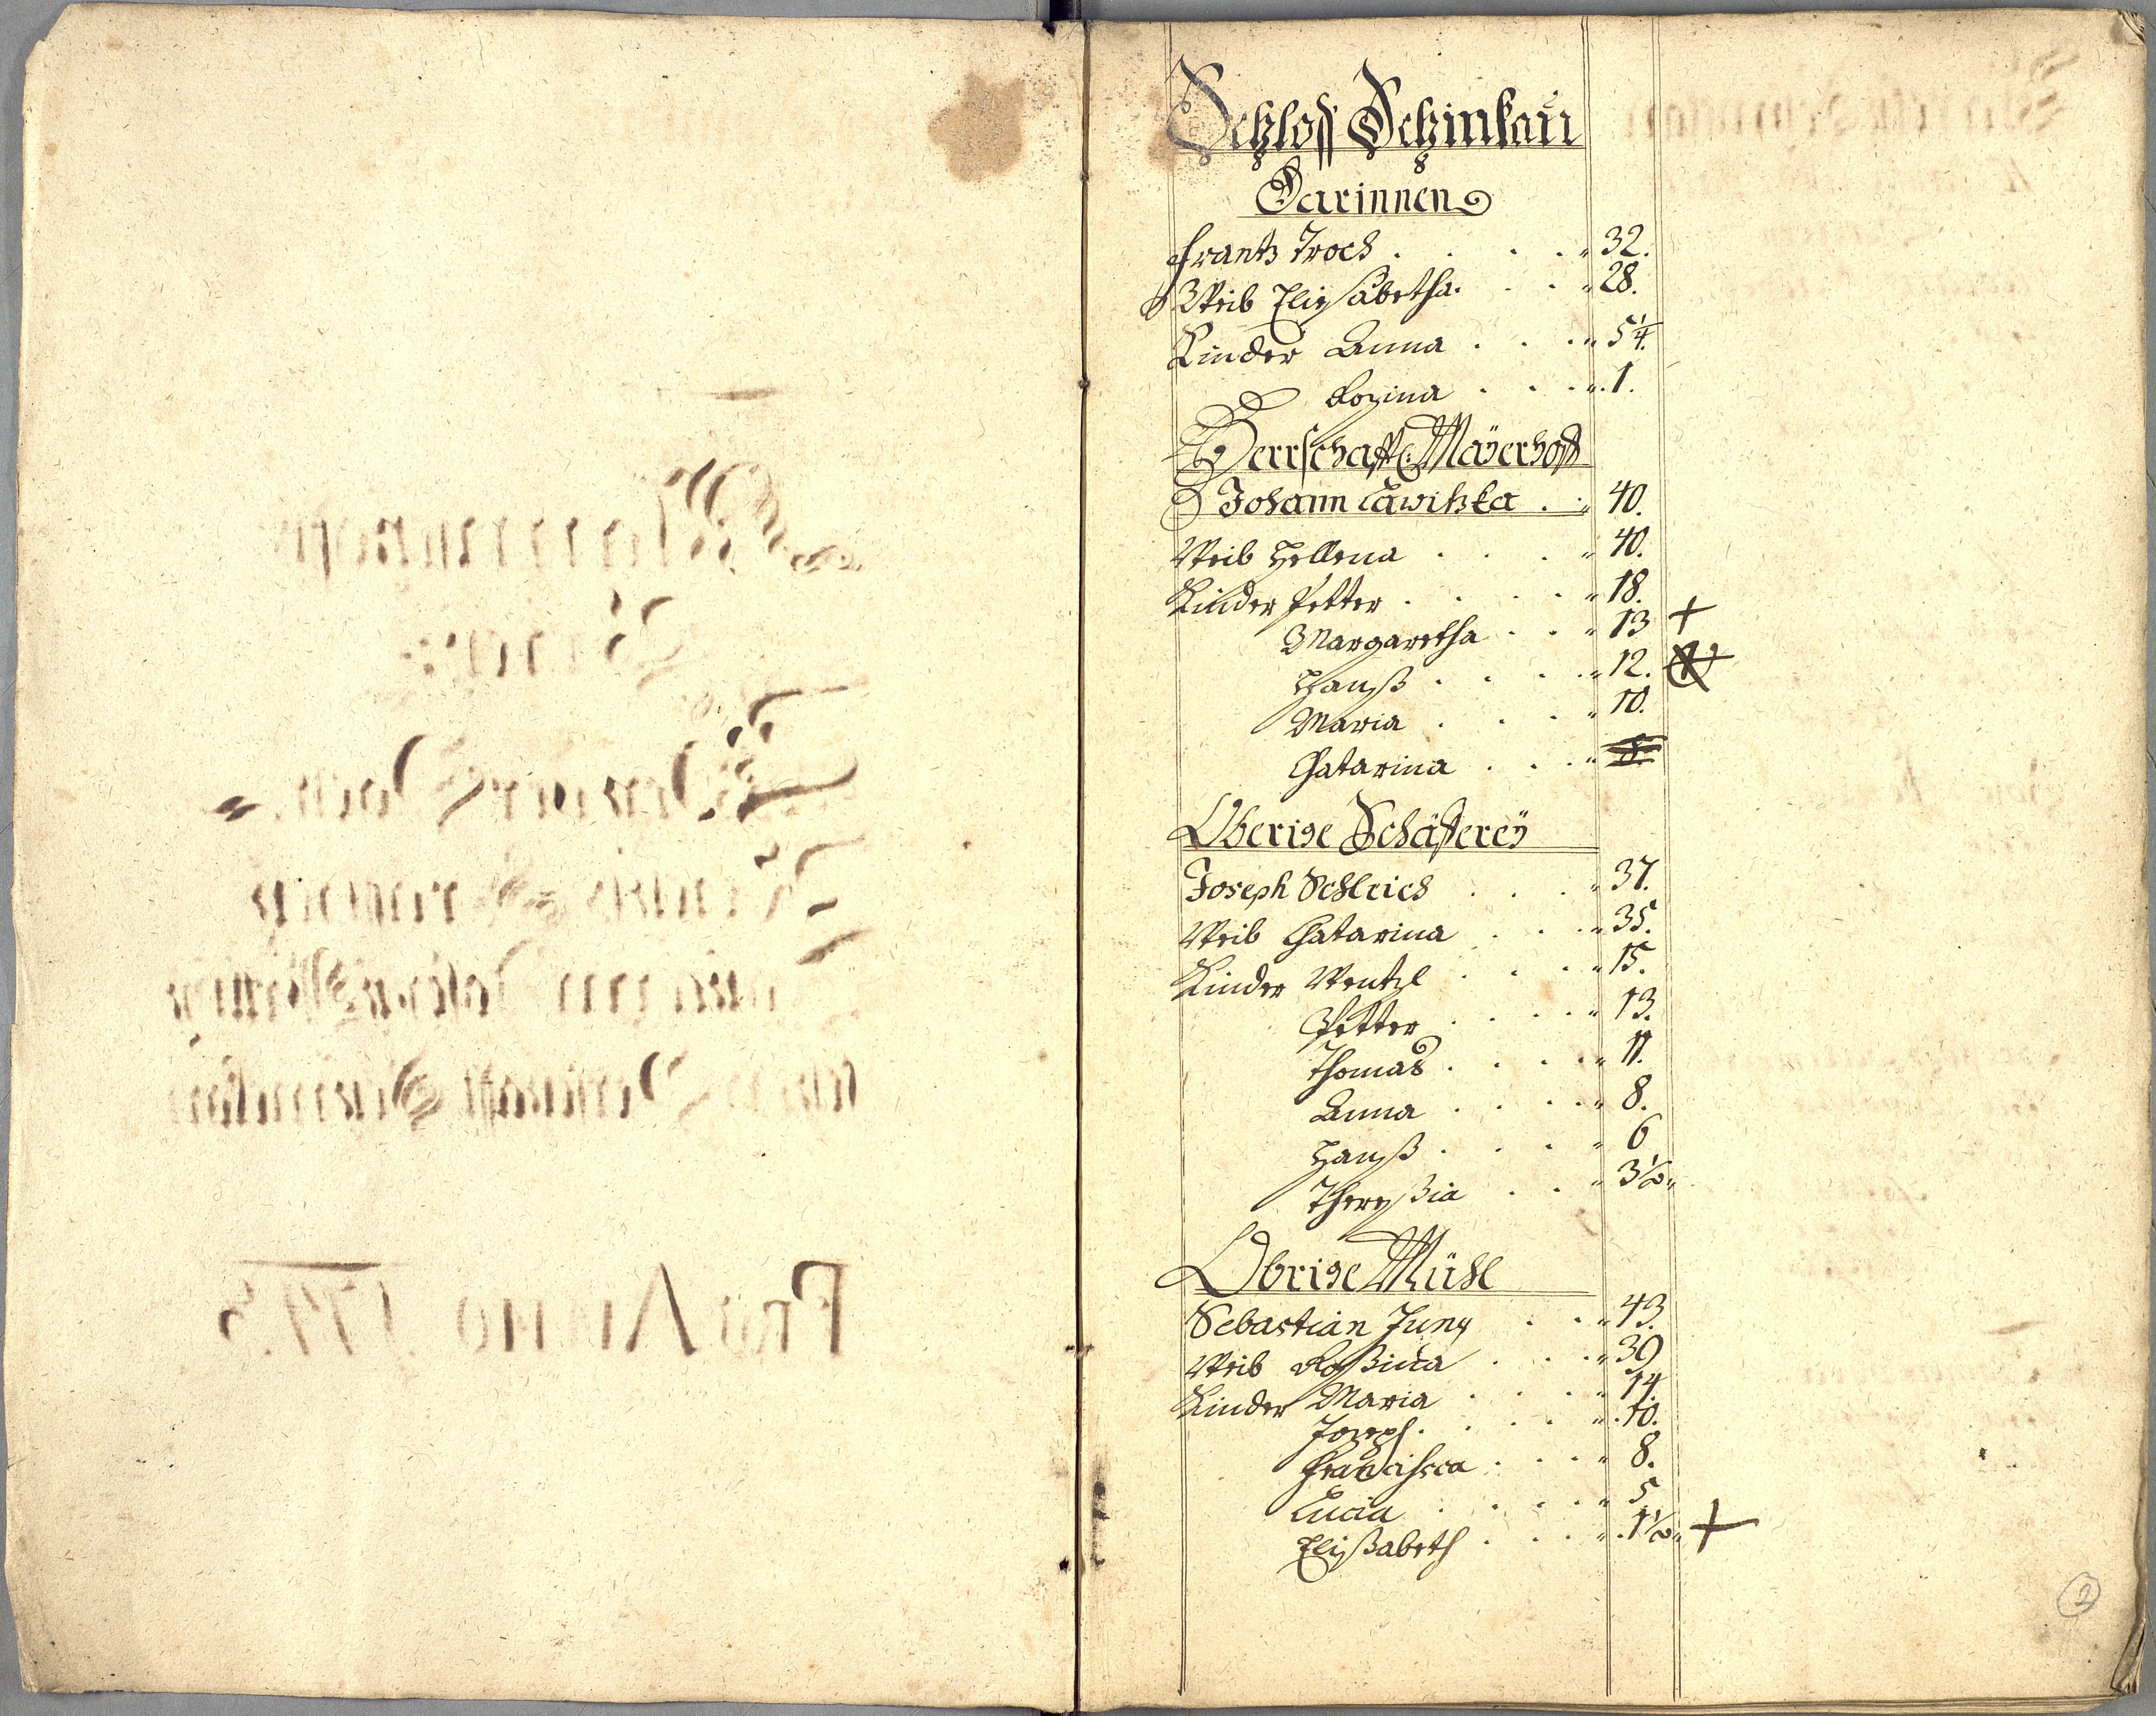 Schloß Schinkau
Darinnen
Frantz Troch . . . . " 32.
Weib Elisabetha. . . " 28.
Kinder Anna . . . " 5 1/4.
Rozina . . . " 1.
Herrschaftl: Mayerhoff
Johann Lawitzka . . " 40.
Weib Hellena . . . " 40.
Kinder Petter . . . . " 18.
Margaretha . . " 13 +
Hanß . . . . " 12.
Maria . . . " 10.
Catarina . . . " 8.
Oberige Schäfferey
Joseph Schleich . . . " 37.
Weib Catarina . . . " 35.
Kinder Wentzl . . . " 15.
Petter . . . . " 13.
Thomas . . . . " 11.
Anna . . . . " 8.
Hanß . . . " 6
Thereßia . . " 3 1/2"
Obrige Mühl
Sebastian Jung . . " 43.
Weib Roßina . . . " 39
Kinder Maria . . . . " 14.
Joseph . . . . " 10.
Francisca . . . . " 8.
Lucia . . . . " 5
Elißabeth . . . . " 1 1/2" +
2